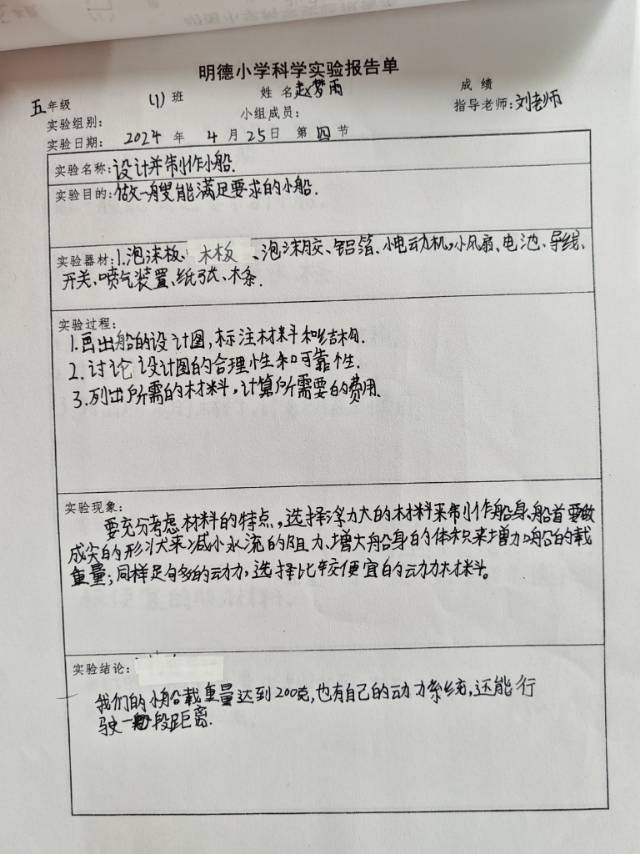 明德小学科学实验报告单
五年级 (1)班 姓名赵梦雨 成绩
实验组别: 小组成员: 指导老师:刘老师
实验日期: 2024 年 4 月 25 日 第 四 节
实验名称:设计并制作小船.
实验目的:做一艘能满足要求的小船.
实验器材:1.泡沫板、木板、泡沫胶、铝箔、小电动机,小风扇、电池、导线、
开关、喷气装置、纸张、木条.
实验过程:
1.画出船的设计图,标注材料和结构.
2.讨论设计图的合理性和可靠性.
3.列出所需的材料,计算所需要的费用.
实验现象:
要充分考虑材料的特点,选择浮力大的材料来制作船身、船首要做
成尖的形状来减小水流的阻力、增大船身的体积来增加船的载
重量;同样足够的动力,选择比较便宜的动力材料。
实验结论:
我们的小船载重量达到200克,也有自己的动力系统,还能行
驶一段距离.